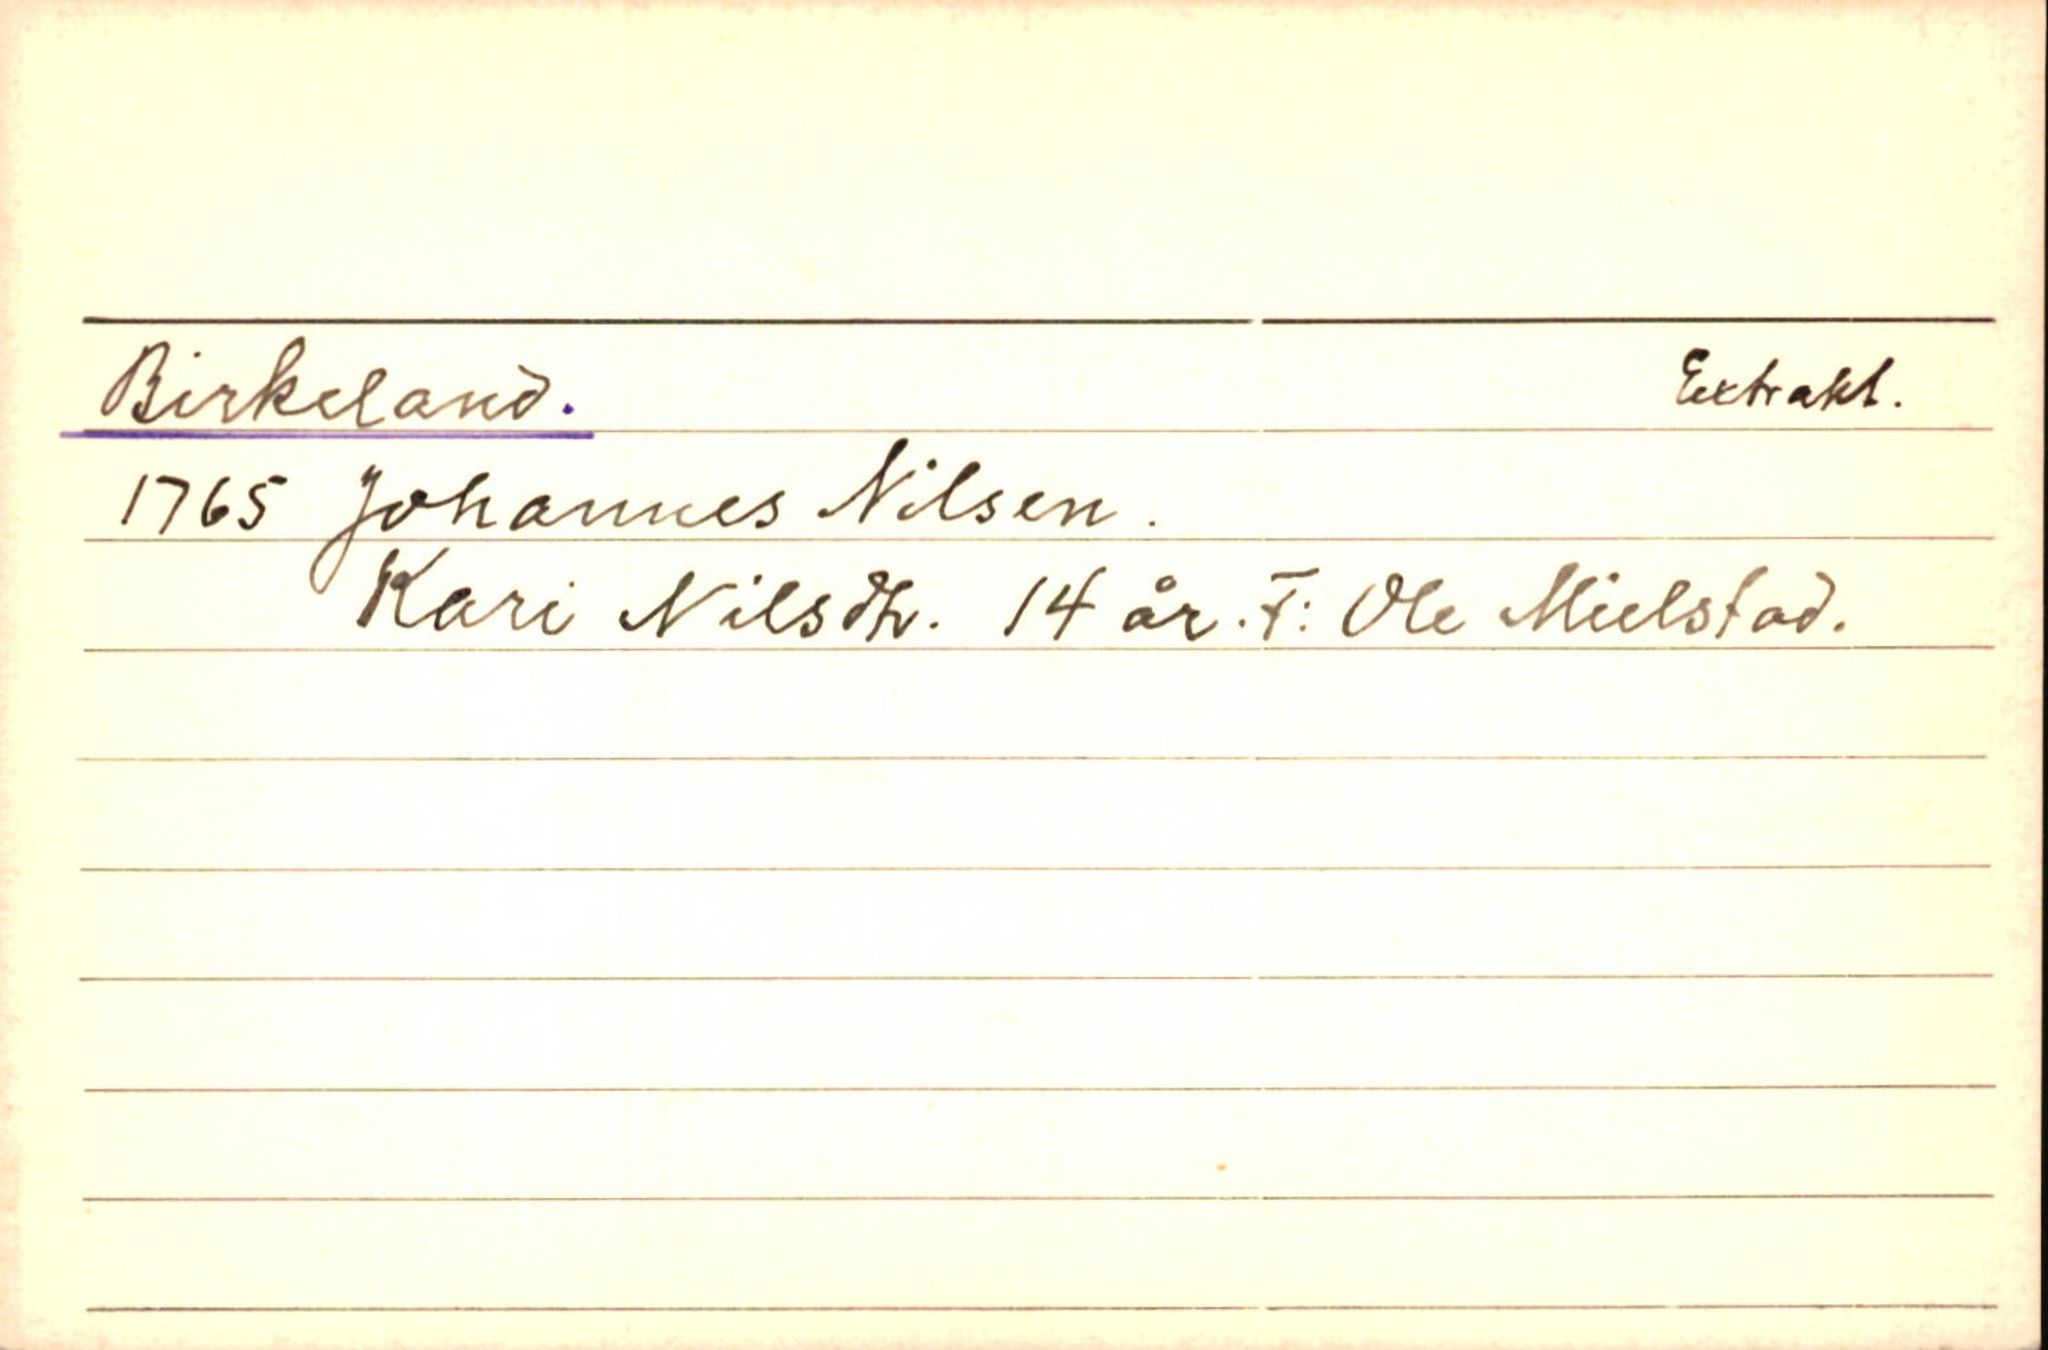 Birkeland. Extrakt.
1765 Johannes Nilsen.
Kari Nilsdtr. 14 år. F: Ole Mielstad.